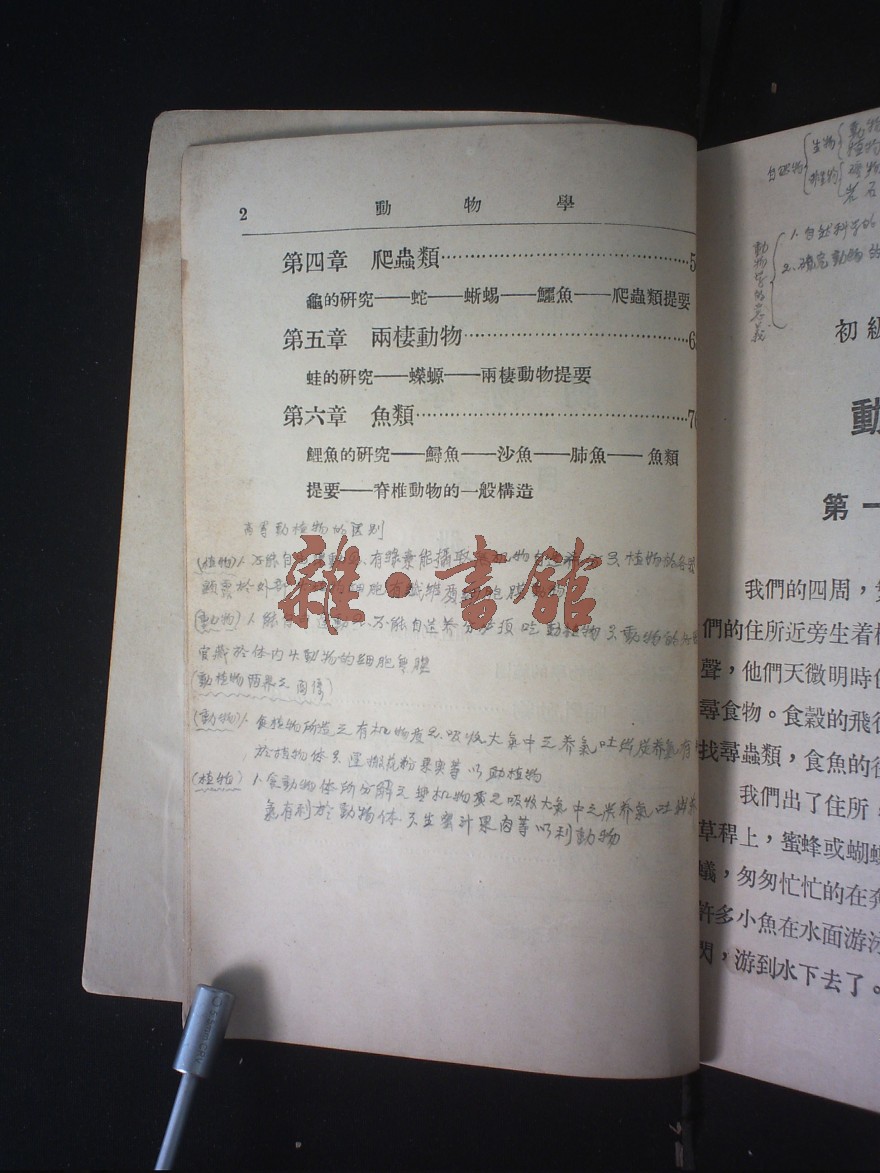 2 動物學
第四章 爬蟲類……5
龜的研究——蛇——蜥蜴——鱷魚——爬蟲類提要
第五章 兩棲動物……6
蛙的研究——蠑螈——兩棲動物提要
第六章 魚類……76
鯉魚的研究——鱘魚——沙魚——肺魚——魚類
提要——脊椎動物的一般構造
高等動植物的区别
(植物)1.不能自 動 2.有綠素能攝取 机物自造养 3.植物的
顯露於外部 細胞有纖維 膜
(動物)1.能 動 2.不能自造养分必須吃動植物 3.動物的
實藏於体内 4.動物的細胞無膜
(動植物兩界之関係)
(動物)1.食植物所造之有机物質 2.吸收大氣中之养氣吐出炭养氣有
於植物体 3.運搬花粉果実等以助植物
(植物)1.食動物体所分解之無机物質 2.吸收大氣中之炭养氣吐出养
氣有利於動物体 3.生蜜汁果肉等以利動物
雜·書館
自然物 生物 動物
植物
非生物 礦物
岩石
動物学的意義
1.自然科学的
2.研究動物的
初級
動
第一
我們的四周，
們的住所近旁生着
聲，他們天微明時
尋食物。食穀的飛
找尋蟲類，食魚的
我們出了住所，
草稈上，蜜蜂或蝴蝶
蟻，匆匆忙忙的在
許多小魚在水面游
閃，游到水下去了。